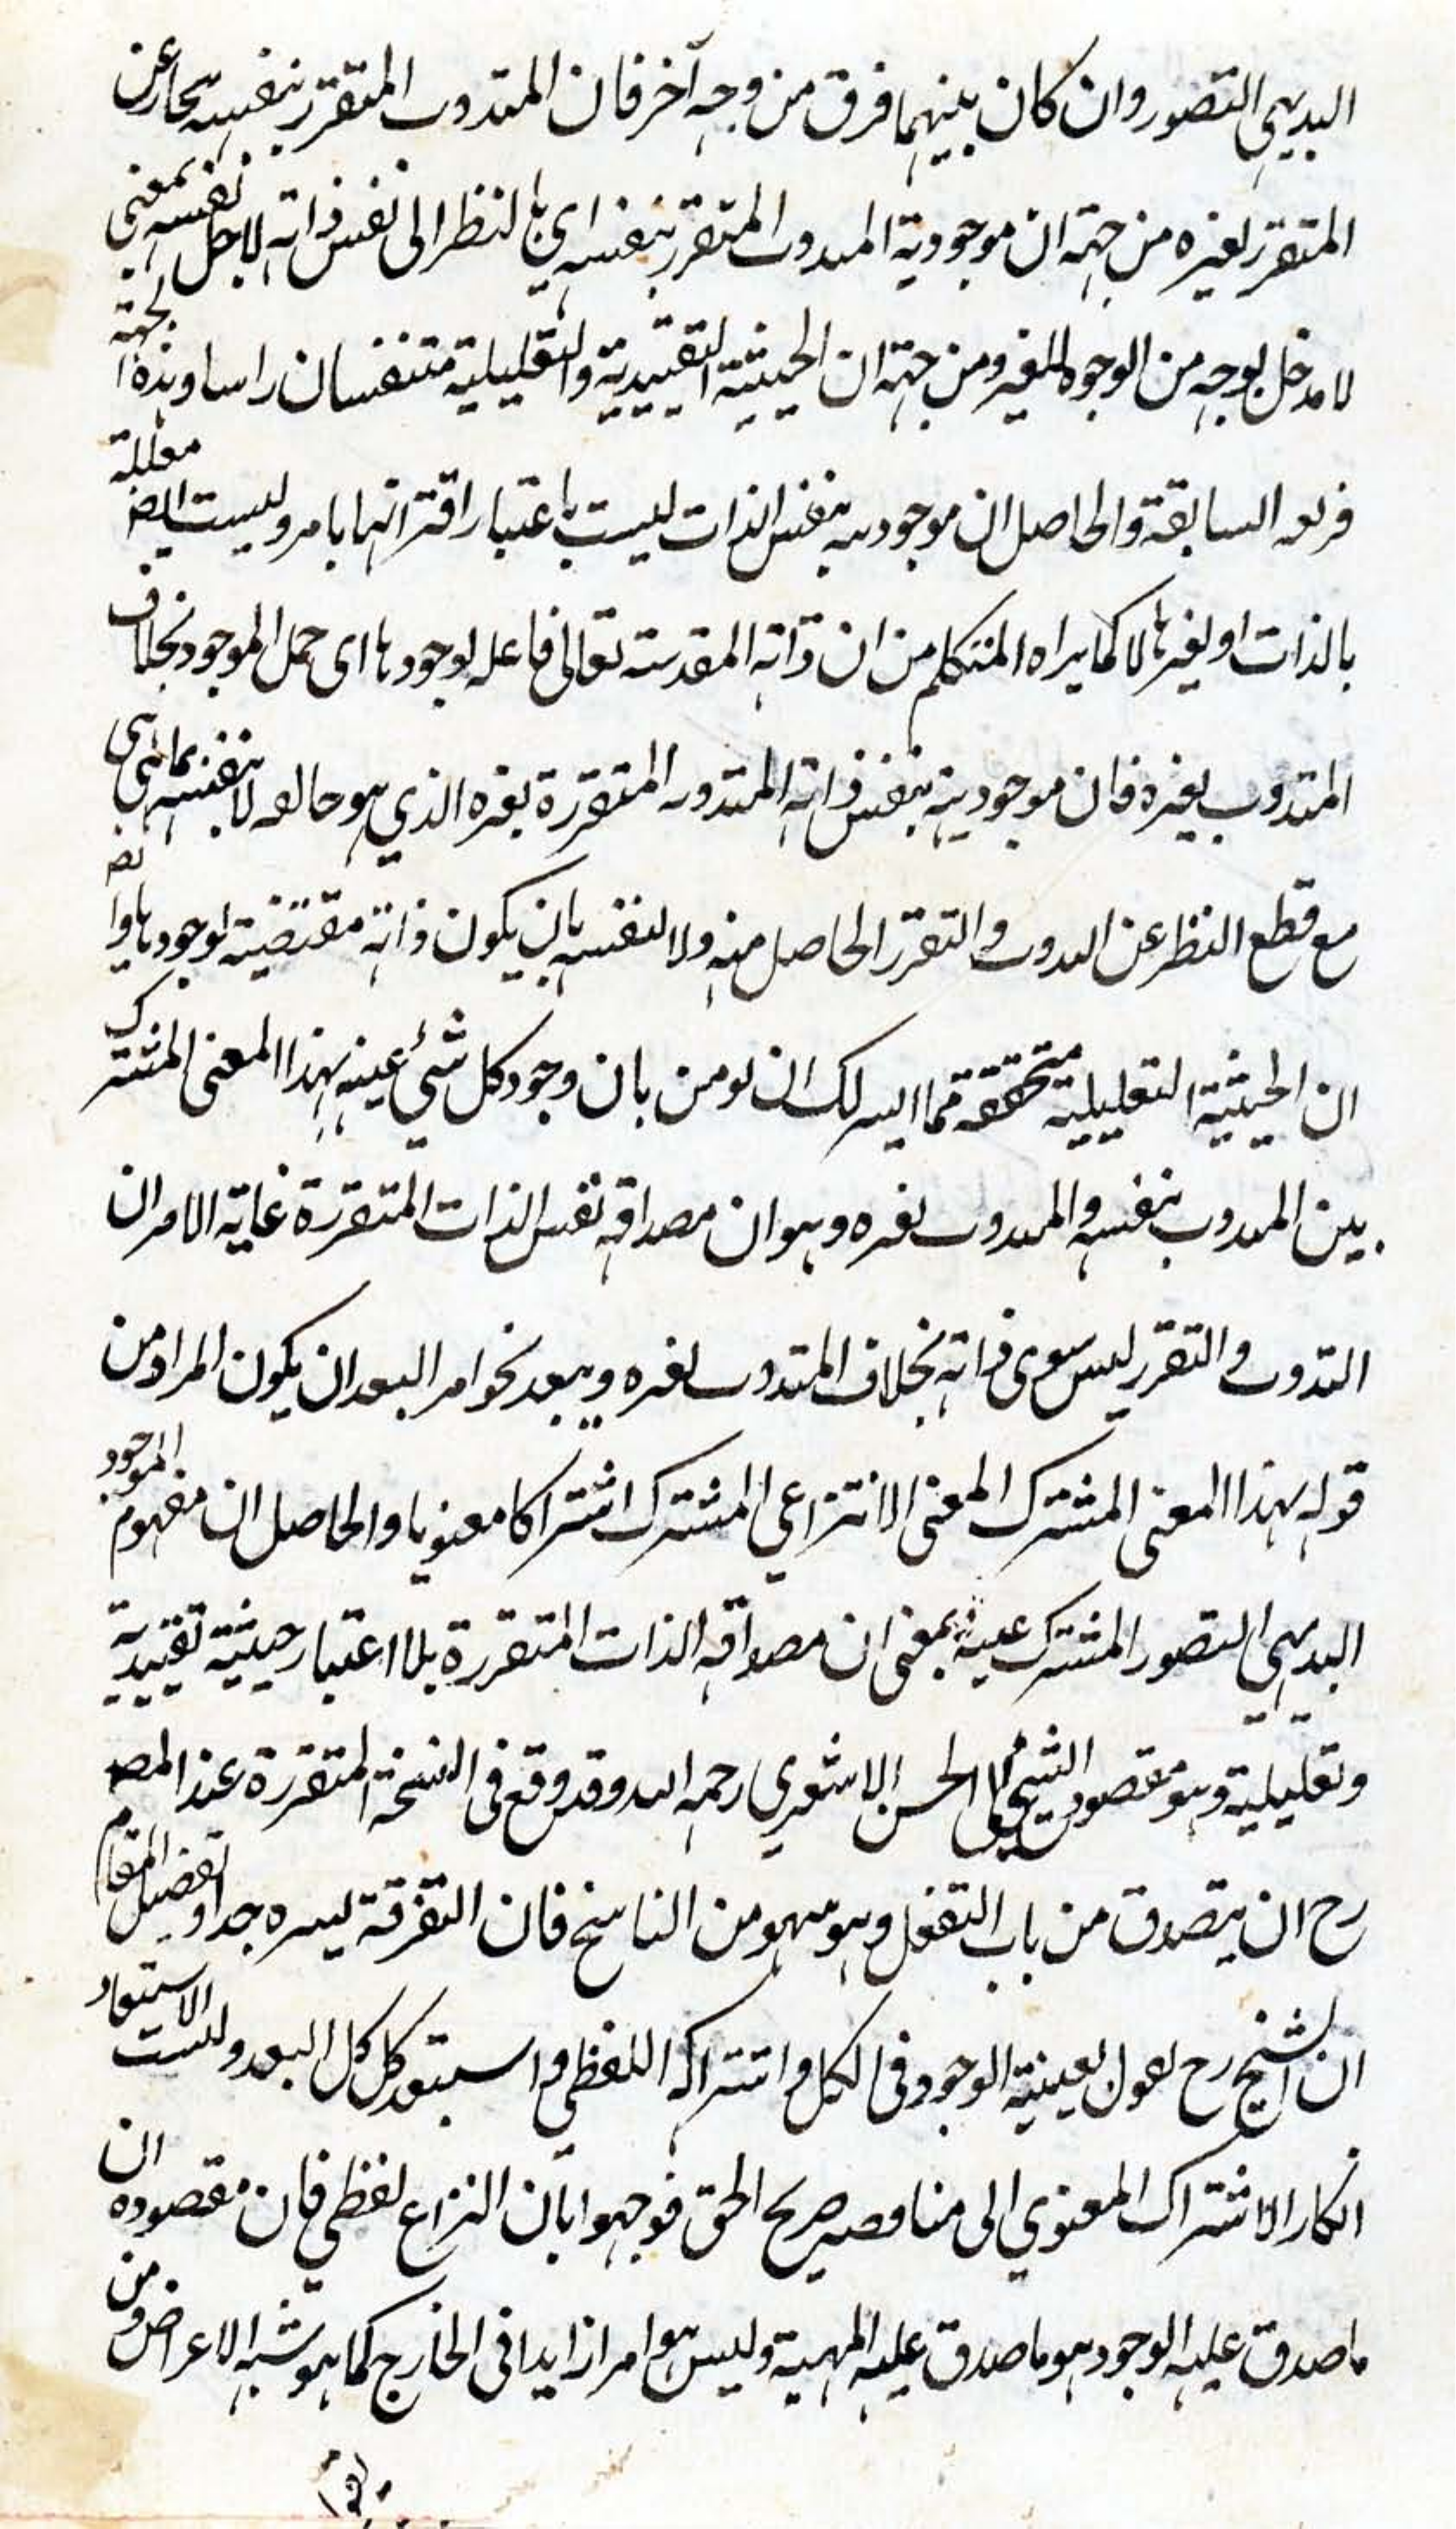 البديهي التصور وان كان بينهما فرق من وجه آخر فان المتذوت المتقرر بنفسه يمتاز عن
المتقرر لغيره من جهة ان موجودية المتذوت المتقرر بنفسه اي بالنظر الى نفس ذاته لا لاجل نفسه بمعنى
لا مدخل بوجه من الوجوه للغير ومن جهة ان الحيثية التقييدية والتعليلية منتفيتان راسا وهذه الجهة
فرع السابقة والحاصل ان موجوديته بنفس الذات ليست باعتبار اقترانها بامر وليست ايضا معللة
بالذات او لغيرها لا كما يراه المتكلم من ان ذاته المقدسة تعالى فاعل لوجودها اى حمل الموجود بخلاف
المتذوت بغيره فان موجوديته بنفس ذاته المتذوته المتقررة بغيره الذي هو جاعله لا بنفسه بما هي هي
مع قطع النظر عن التذوت والتقرر الحاصل منه ولا لنفسه بان يكون ذاته مقتضية لوجودها واتضح
ان الحيثية التعليلية متحققة فما ايسر لك ان تومن بان وجود كل شئ عينه بهذا المعنى المشترك
بين المتذوت بنفسه والمتذوت بغيره وهو ان مصداقه نفس الذات المتقررة غاية الامر ان
التذوت والتقرر ليس سوى ذاته بخلاف المتذوت لغيره ويبعد نحوا من البعد ان يكون المراد من
قوله بهذا المعنى المشترك المعنى الانتزاعي المشترك اشتراكا معنويا والحاصل ان مفهوم الموجود
البديهي التصور المشترك عينه بمعنى ان مصداقه الذات المتقررة بلا اعتبار حيثية تقييدية
وتعليلية وهو مقصود الشيخ ابى الحسن الاشعري رحمه الله وقد وقع فى النسخة المتقررة عند المصـ
رح ان يتصدق من باب التفعل وهو سهو من الناسخ فان التفرقة ليسره جدا وتفصيل المقام
ان الشيخ رح يقول بعينية الوجود فى الكل واشتراكه اللفظي واستبعد كل كل البعد وليست الاستبعاد
انكار الاشتراك المعنوي الى مناقصه صريح الحق فوجهوا بان النزاع لفظي فان مقصوده ان
ما صدق عليه الوجود هو ما صدق عليه المهية وليس هو امرا زايدا فى الخارج كما هو شبه الاعراض ومن